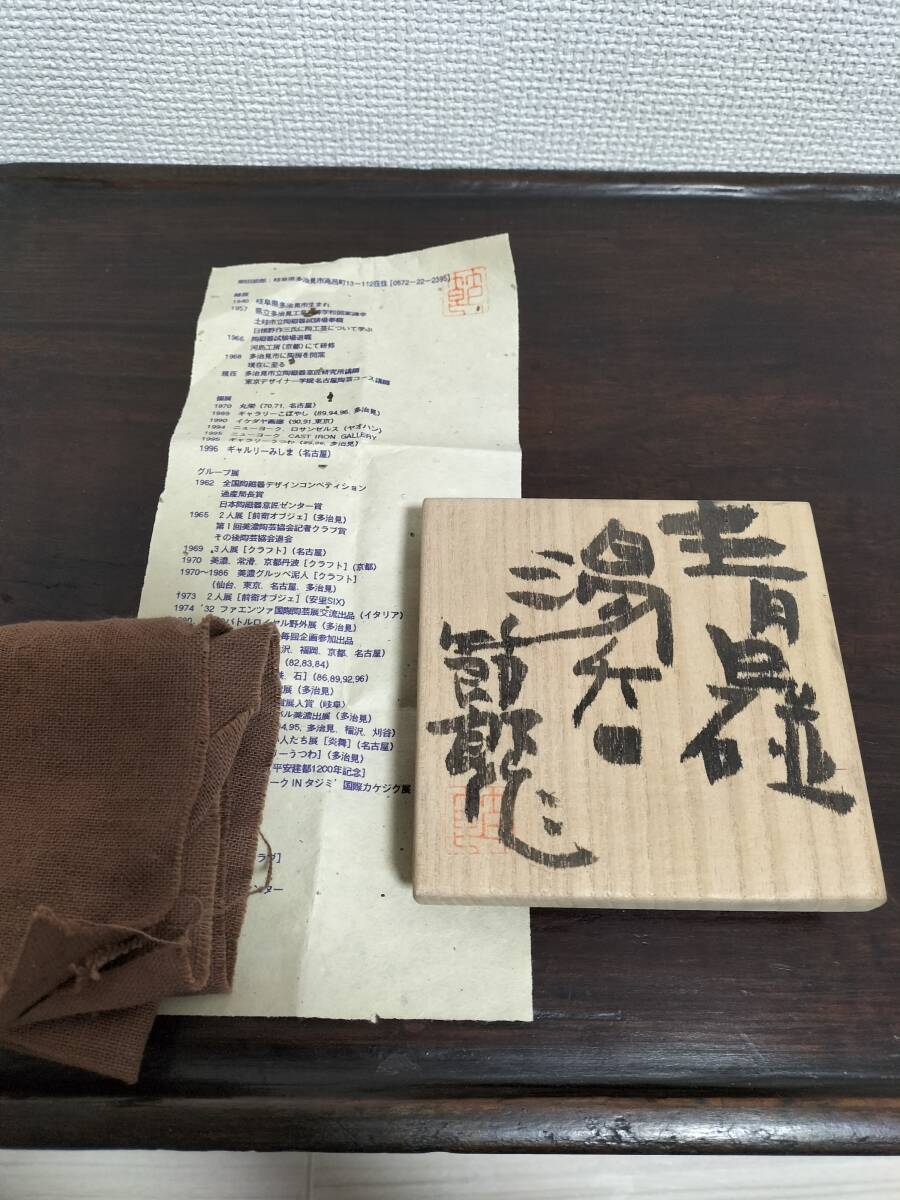 岐阜県多治見市高田町13-112在住 [0572-22-2395]
1940 岐阜県多治見市生まれ
1957
日根野作三氏に陶工芸について学ぶ
1966 陶磁器試験場退職
河島工房(京都)にて研修
1968 多治見市に陶房を開窯
現在に至る
現在 多治見市立陶磁器意匠研究所講師
東京デザイナー学院名古屋陶芸コース講師
個展
1970 丸栄(70,71,名古屋)
1989 ギャラリーこばやし(89,94,96,多治見)
1990 イケダヤ画廊(90,91,東京)
1994 ニューヨーク、ロサンゼルス(ヤオハン)
1995 ニューヨーク CAST IRON GALLERY
1995 ギャラリーうつわ(95,96,多治見)
1996 ギャルリーみしま(名古屋)
グループ展
1962 全国陶磁器デザインコンペティション
通産局長賞
日本陶磁器意匠センター賞
1965 2人展[前衛オブジェ](多治見)
第1回美濃陶芸協会記者クラブ賞
その後陶芸協会退会
1969 3人展[クラフト](名古屋)
1970 美濃、常滑、京都丹波[クラフト](京都)
1970〜1986 美濃グルッペ泥人[クラフト]
(仙台、東京、名古屋、多治見)
1973 2人展[前衛オブジェ](安里SIX)
1974 '32 ファエンツァ国際陶芸展交流出品(イタリア)
バトルロイヤル野外展(多治見)
毎回企画参加出品
沢、福岡、京都、名古屋)
(82,83,84)
、石](86,89,92,96)
展(多治見)
賞展人賞(岐阜)
バル美濃出展(多治見)
4,95,多治見、稲沢、刈谷)
人たち展[炎舞](名古屋)
ーうつわ](多治見)
平安建都1200年記念]
ークINタジミ' 国際カケジク展
ラブ]
ンター
青白磁
湯呑
節郎作